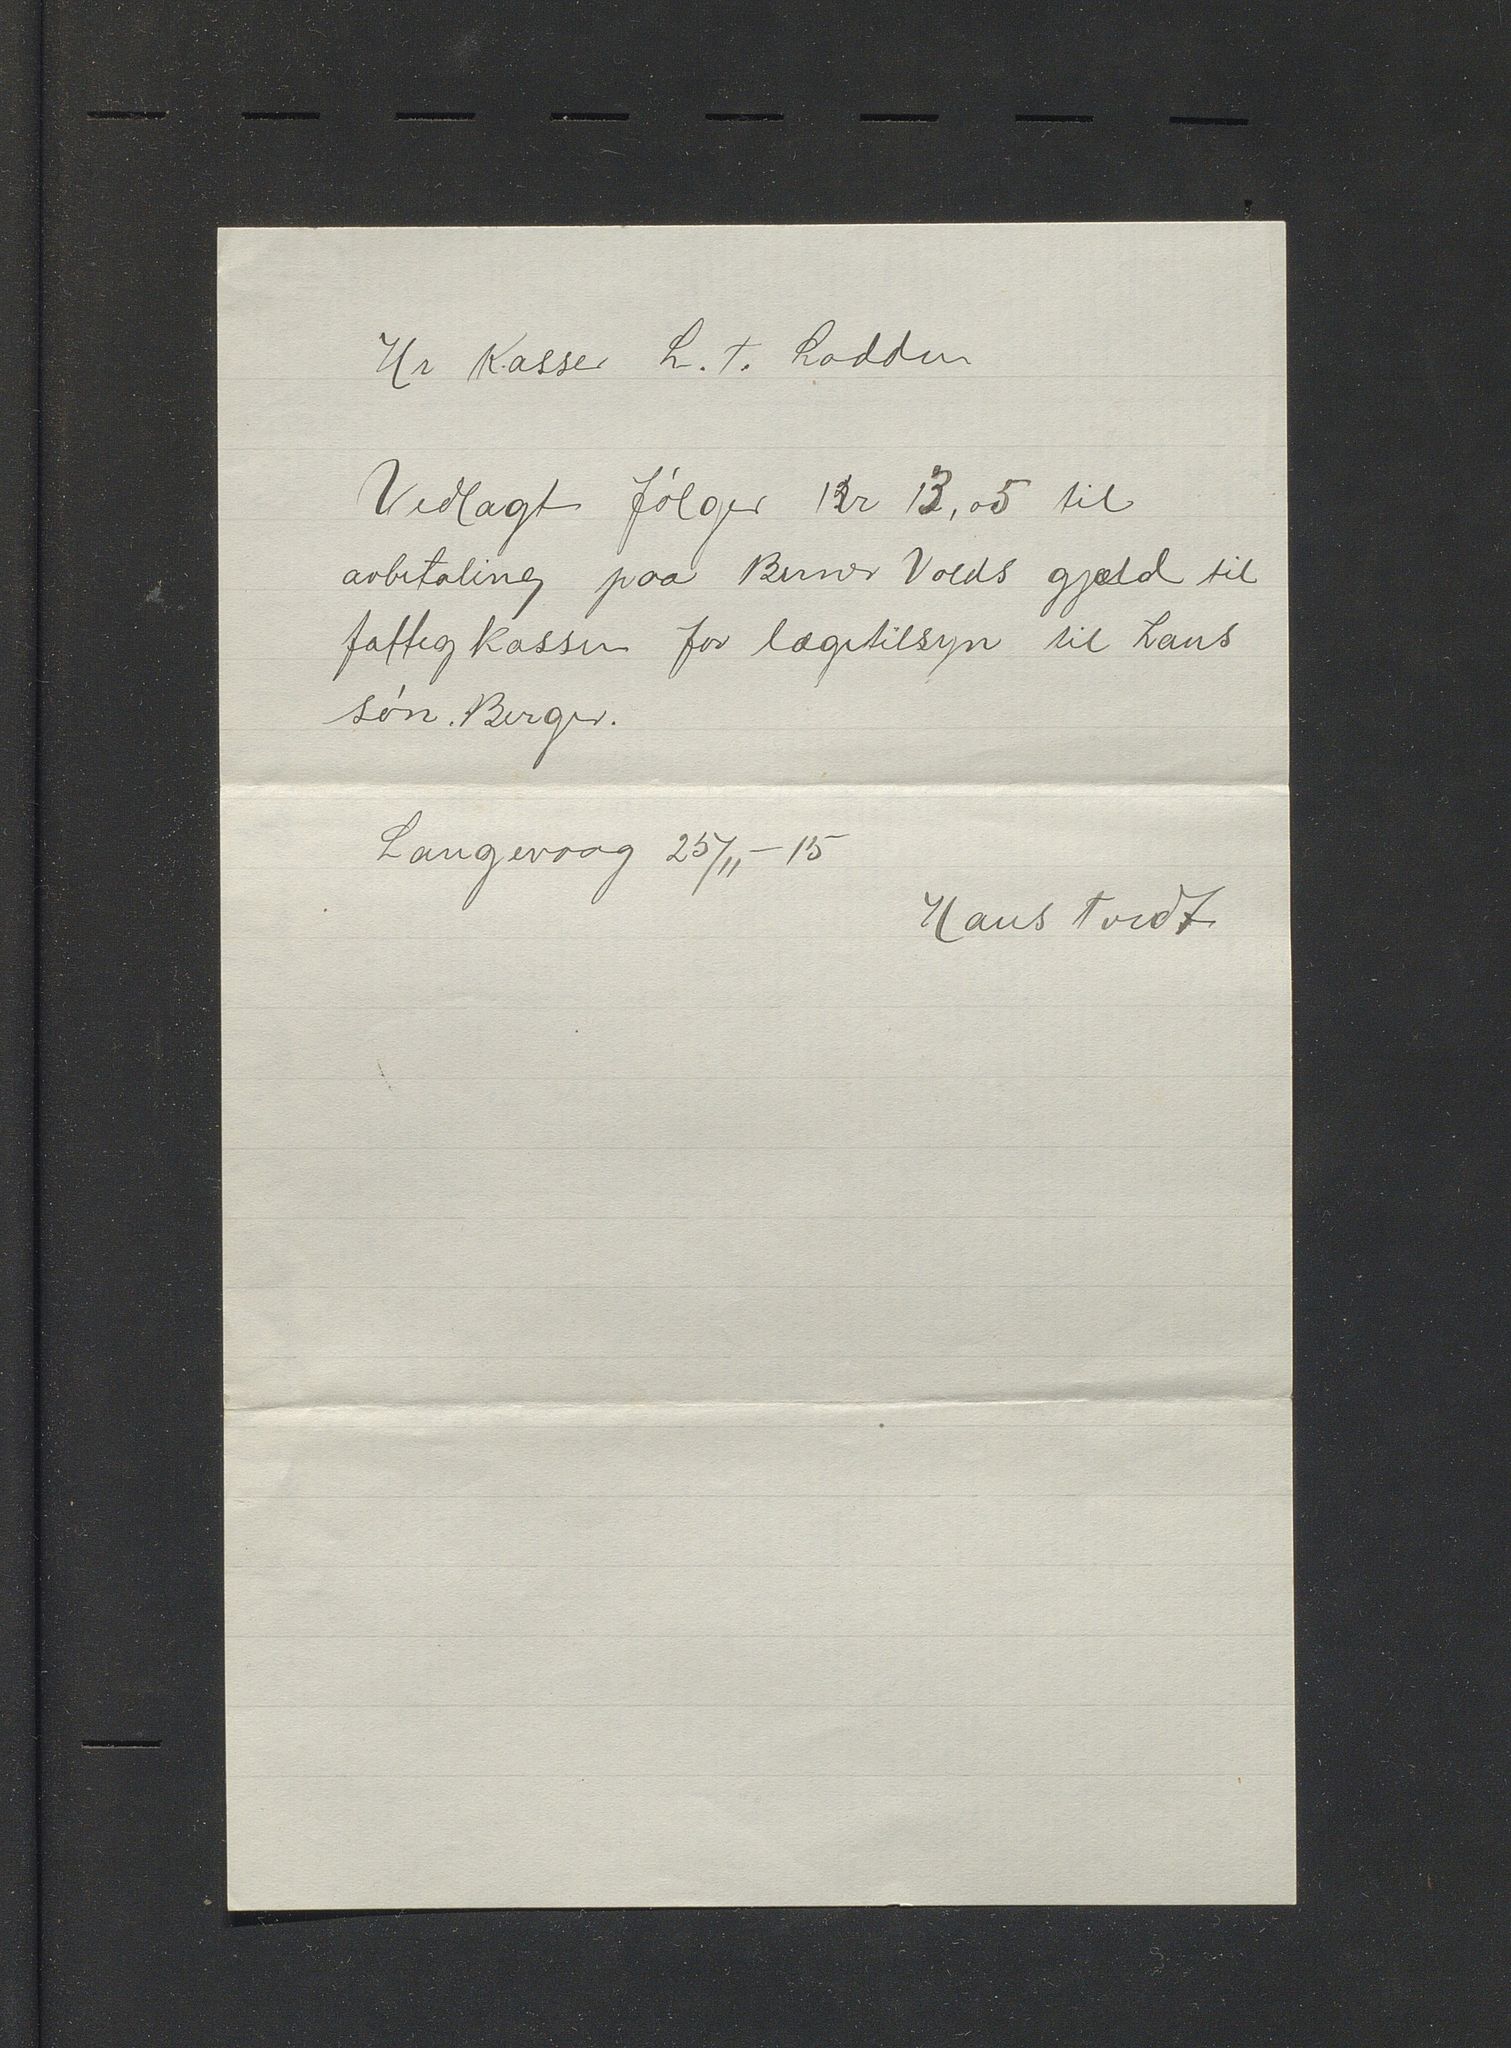 Hr Kasser L. T. Lodden
Vedlagt følger Kr 13,05 til
avbetaling paa Berner Volds gjæld til
fattigkassen for lægetilsyn til Hans
søn. Berger.
Langevaag 25/11-15
Hans Tvedt